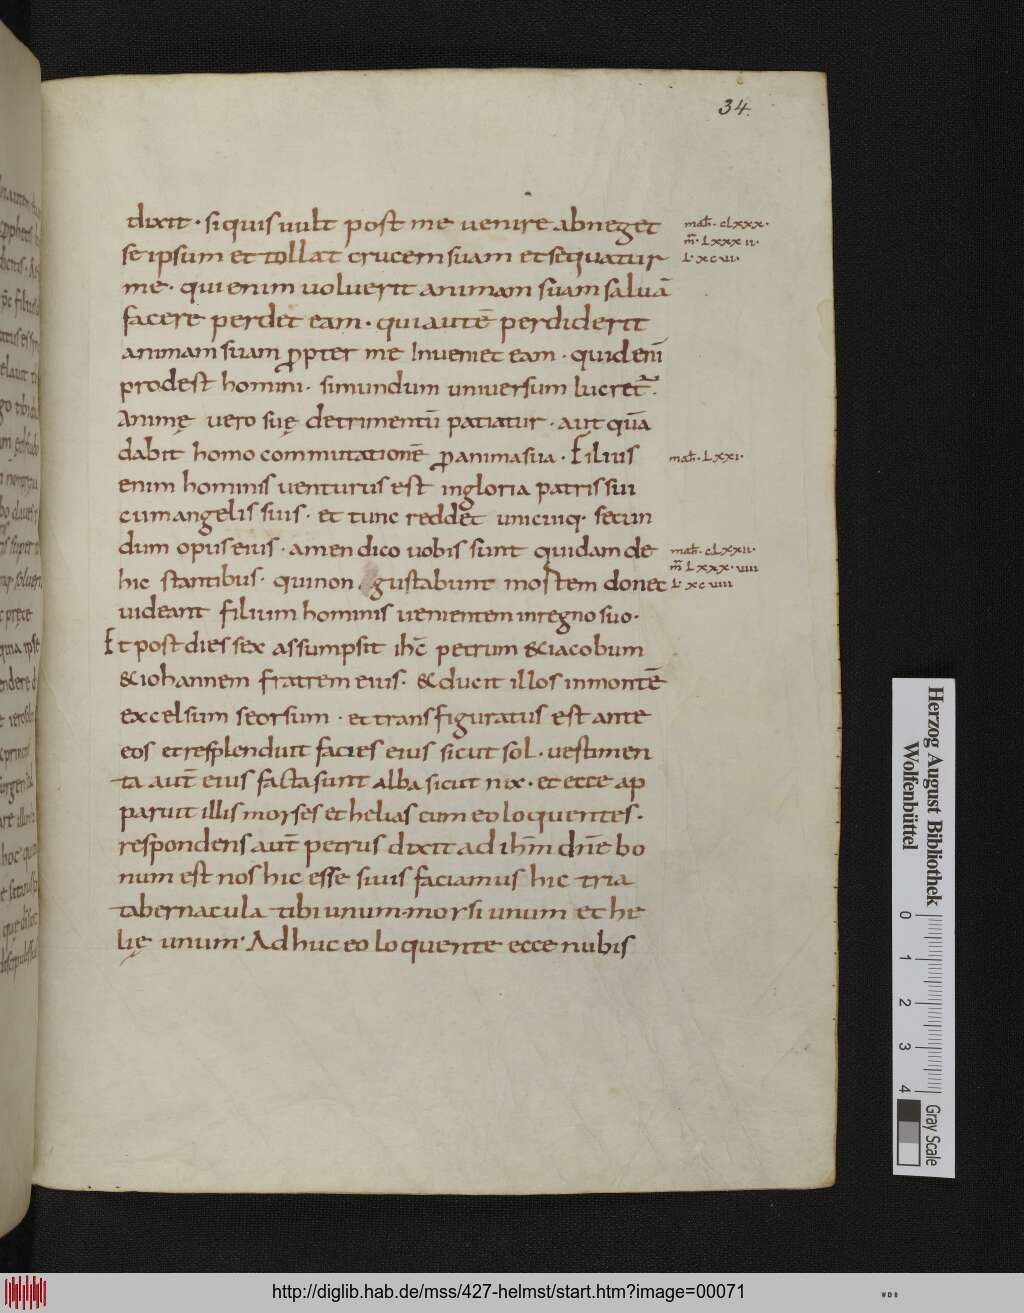 34.
dixit · siquis uult post me uenire abneget
se ipsum et tollat crucem suam et sequatur
me · qui enim uoluerit animam suam saluā
facere perdet eam · qui autē perdiderit
animam suam ꝓpter me Inueniet eam · quid eni̅
prodest homini · si mundum uniuersum lucret᷑ ·
Animę uero suę detrimentū patiatur · aut quā
dabit homo commutationē ꝓ anima sua · Filius
enim hominis uenturus est in gloria patris sui
cum angelis suis · et tunc reddet unicuiq · secun
dum opus eius · amen dico uobis sunt quidam de
hic stantibus · qui non gustabunt mortem donec
uideant filium hominis uenientem in regno suo ·
Et post dies sex assumpsit ihc̅ petrum & iacobum
& iohannem fratrem eius · & ducit illos in montē
excelsum seorsum · et transfiguratus est ante
eos et resplenduit facies eius sicut sol · uestimen
ta aut̅ eius facta sunt alba sicut nix · et ecce ap
paruit illis moyses et helias cum eo loquentes ·
respondens aut̅ petrus dixit ad ihm̅ dn̅e bo
num est nos hic esse si uis faciamus hic tria
tabernacula tibi unum · moysi unum et he
lię unum · Adhuc eo loquente ecce nubis
math̅ · cLxxx ·
m̅ · Lxxxii ·
L · xcvii ·
math̅ · Lxxi ·
math̅ · cLxxii ·
m̅ Lxxx · viiii
L · xcviiii
Herzog August Bibliothek
Wolfenbüttel
0 1 2 3 4
Gray Scale
http://diglib.hab.de/mss/427-helmst/start.htm?image=00071